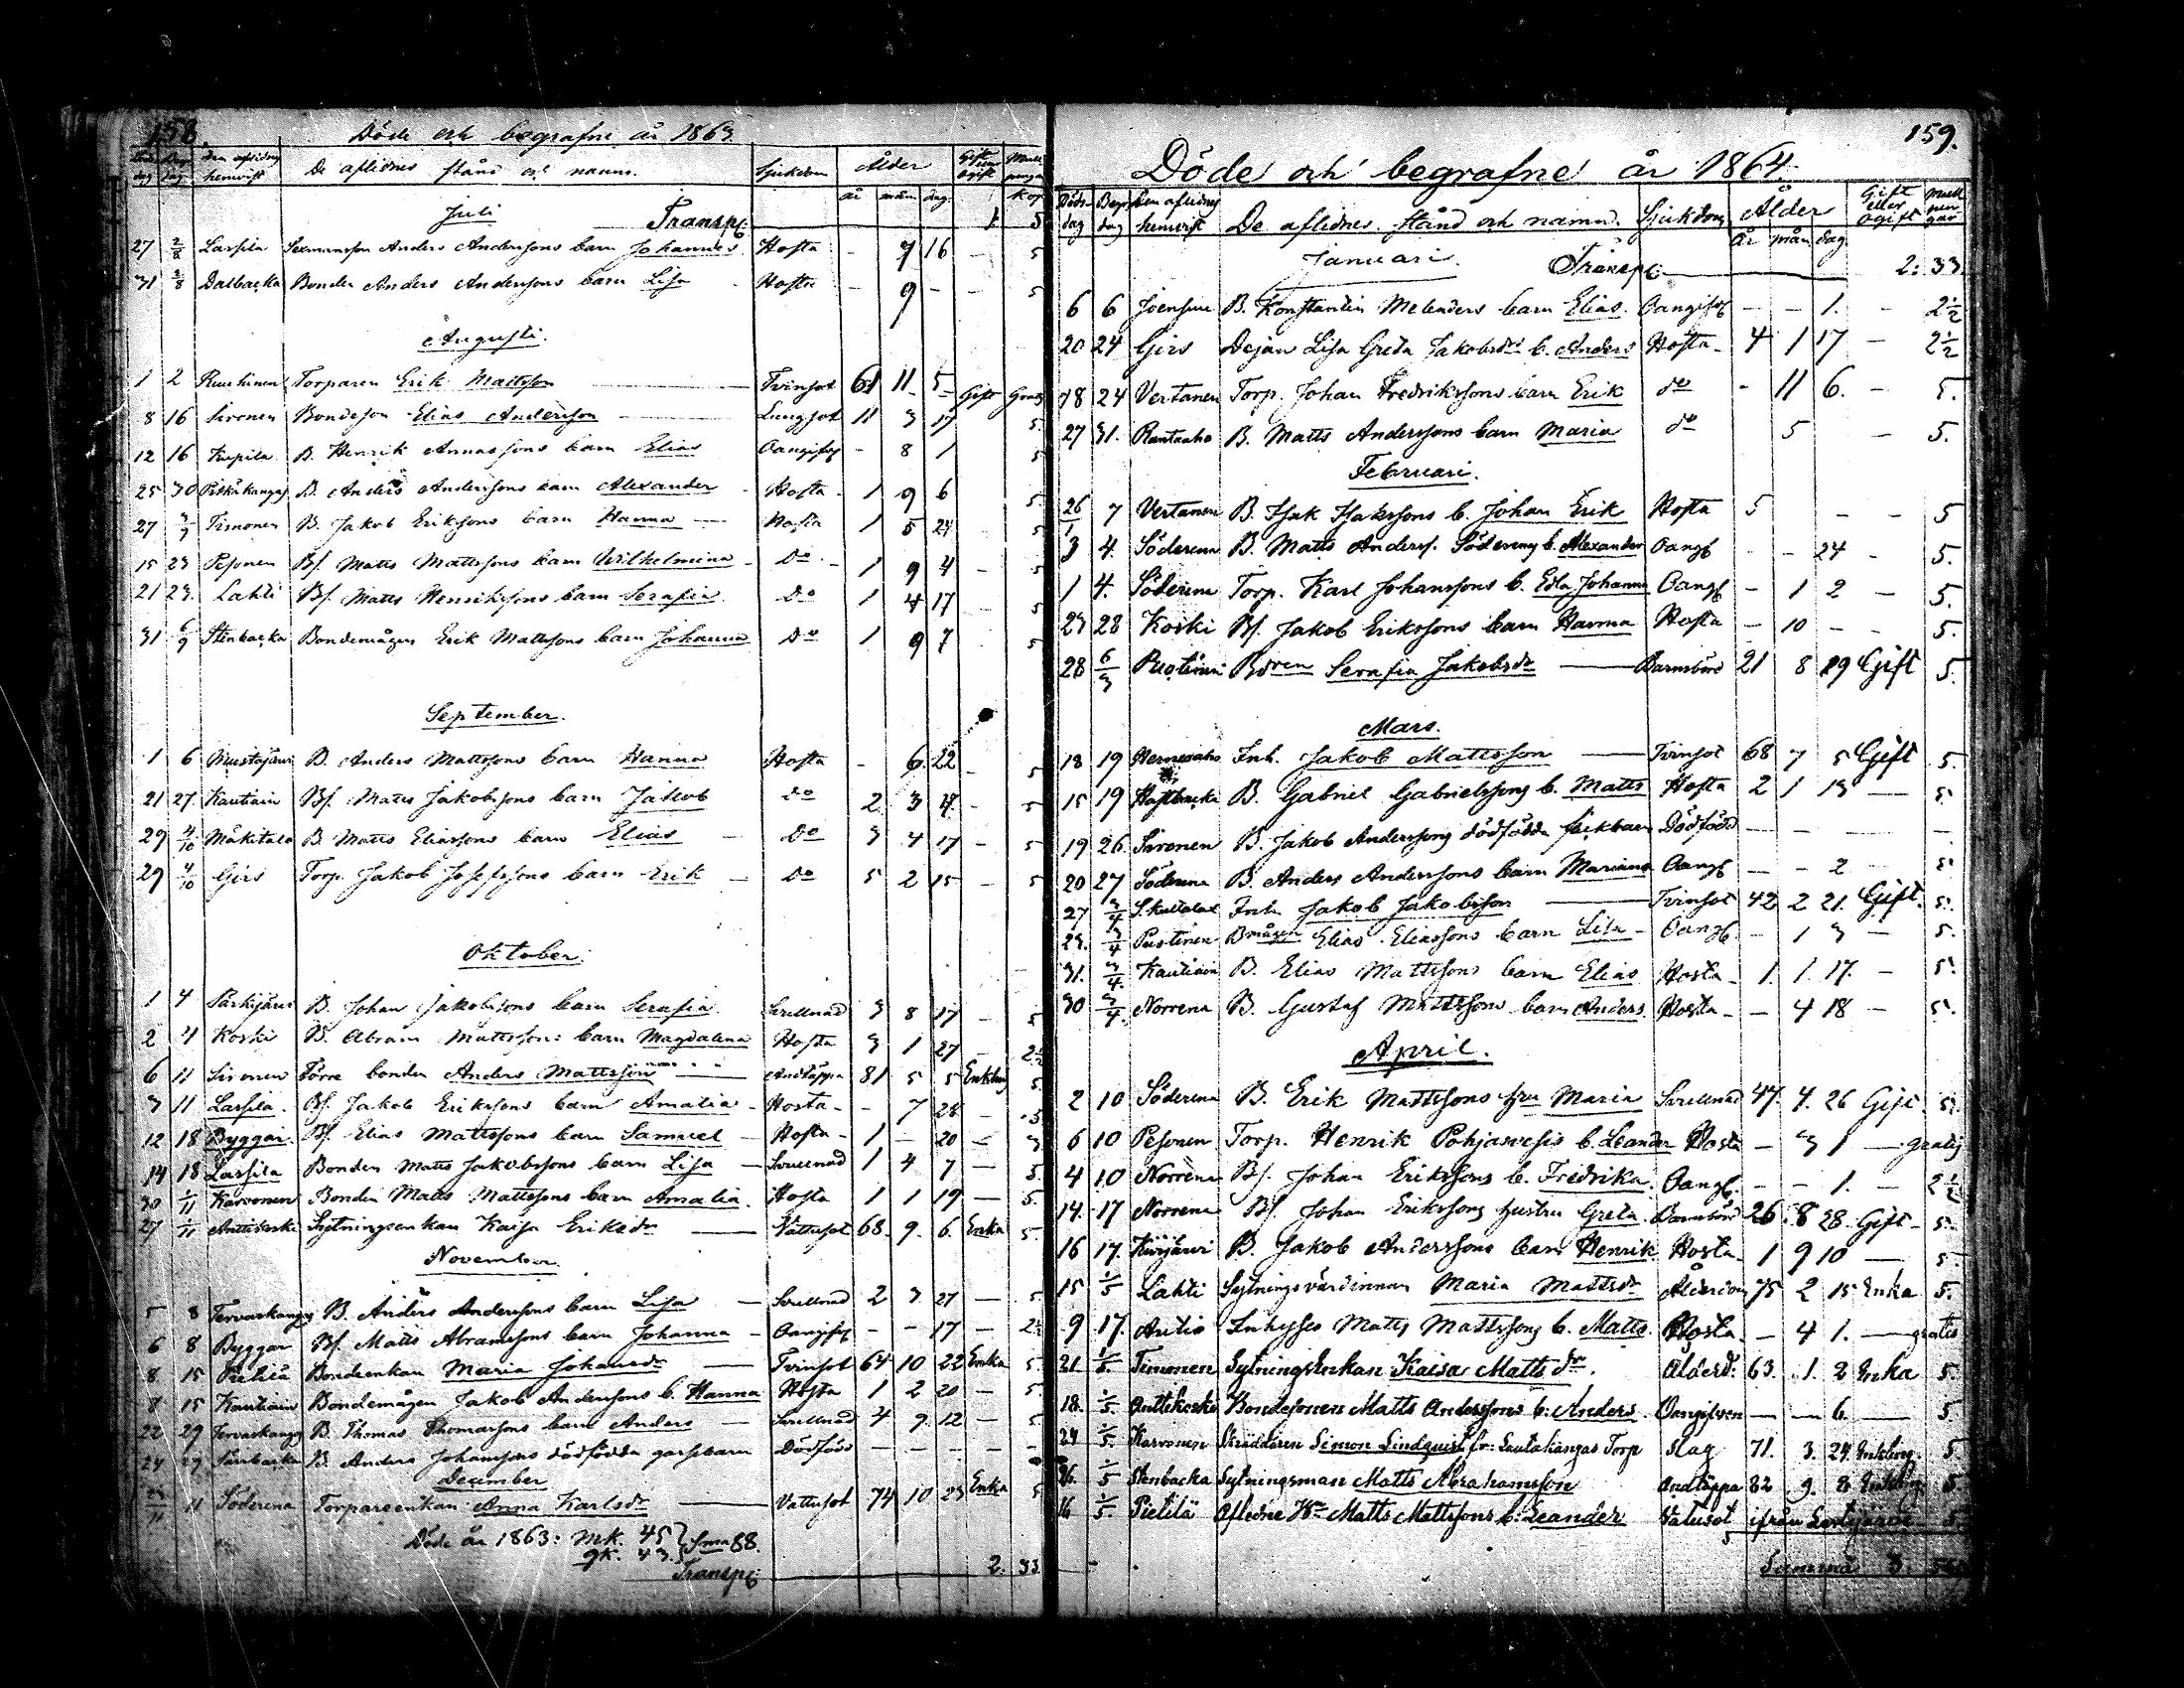 158.
Döde och begrafne år 1863.
Döds dag Begr. dag Den aflidnes hemvist De aflidnes stånd och namn. Sjukdom Ålder Gift eller ogift Mullpengar
år mån. dag. kop
Juli Transp: 1 5
27 2/8 Lassila Anders Anderssons barn Johannes Hosta - 9 16 - 5
31 2/8 Dalbacka Bonden Anders Anderssons barn Lisa - Hosta - 9 - - 5
Augusti.
1 2 Torparen Erik Mattsson Tvinsot 61 11 5 Gift Gratis
8 16 Sironen Bondeson Elias Andersson Lungsot 11 3 17 5.
12 16 Kupila B. Henrik Annassons barn Elias Oangifv - 8 1 5
25 30 Pitkäkangas B. Anders Anderssons barn Alexander - Hosta - 1 9 6 5.
27 Timonen B. Jakob Erikssons barn Hanna Hosta 1 5 24 - 5
15 23 Pesonen Bs. Matts Mattssons barn Wilhelmina - Do - 1 9 4 - 5
21 23. Lahti Bs. Matts Henrikssons barn Serafia Do 1 4 17 - 5
31 6/9 Stenbacka Bondemågen Erik Mattssons barn Johanna Do 1 9 7 5
September.
1 6 Mustajärvi B. Anders Mattssons barn Hanna Hosta - 6. 22 - 5
21 27. Kautiain Bs. Matts Jakobssons barn Jakob do 2 3 4. - 5
29 4/10 Mäkitalo B. Matts Eliassons barn Elias - Do 3 4 17 - 5
29 4/10 Girs Torp. Jakob Josefssons barn Erik - Do 5 2 15 - 5
Oktober.
1 4 Särkijärvi B. Johan Jakobssons barn Serafia Svullnad 3 8 17 - 5
2 4 Koski B. Abram Mattssons barn Magdalena Hosta 3 1 27 - 2½
6 11 Sironen Förre bonden Anders Mattsson Andtäppa 81 5 5 Enkling 5.
3 11 Lassila. Bs. Jakob Erikssons barn Amalia - Hosta - - 7 28 - 5
12 18 Byggar. Bs. Elias Mattssons barn Samuel - Hosta - 1 - 20 -
14 18 Lassila Bonden Matts Jakobssons barn Lisa - Svullnad 1 4 7 - 5.
30 1/11 Karvonen Bonden Matts Mattssons barn Amalia Hosta 1 1 19 - 5.
27 1/11 Anttikoski Sytningsenkan Kaisa Eriksdr Vattusot 68. 9. 6. Enka 5.
November
5 8 Tervaskangas B. Anders Anderssons barn Lisa - Svullnad 2 3 27 - 5
6 8 Byggar Bs. Matts Abramssons barn Johanna - Oangifv - - 17 - 2½
8 15 Bondenkan Maria Johansdr Tvinsot 64 10 22 Enka 5.
8 15 Kautiain Bondemågen Jakob Anderssons b. Hanna Hosta 1 2 20 - 5.
22 29 Tervaskangas B. Thomas Thomassons barn Anders - Svullnad 4 9. 12 - 5
24 B. Anders Johanssons dödfödda gossebarn Dödfödd - - - - -
December
11 Söderena Torpareenkan Anna Karlsdr Vattusot 74 10 23 Enka 5
Döde år 1863: Mk. 45 } Sma 88.
qk. 43.
Transp: 2. 33.
159.
Döde och begrafne år 1864.
Döds dag Begr. dag Den aflidnes hemvist De aflidnes stånd och namn. Sjukdom Ålder Gift eller ogift Mullpengar
År mån dag
Januari. Transp: 2: 33.
6 6 Joensuu B. Konstantin Melenders barn Elias. Oangifv - - 1. - 2½
20 24 Girs Dejan Lisa Greta Jakobsdrs b. Anders Hosta - 4 1 17 - 2½
18 24 Vertanen Torp. Johan Fredrikssons barn Erik do - 11 6. - 5.
27 31. Rantaaho B. Matts Anderssons barn Maria do 5 - 5.
Februari.
26/1 7 Vertanen B. Isak Isakssons b. Johan Erik Hosta 5 - - 5
3 4. Söderena B. Matts Anderss. Söderena b. Alexander Oangf - - 24 - 5.
1 4. Söderena Torp. Karl Johanssons b. Edla Johanna Oangf - 1 2 - 5.
23 28 Koski Bs. Jakob Erikssons barn Hanna Hosta - 10 - - 5.
28 6/3 Bdren Serafia Jakobsdr Barnsbörd 21 8 19 Gift 5.
Mars.
18 19 Herneaho Inh. Jakob Mattsson Tvinsot 68 7 5 Gift 5.
15 19 Hästbacka B. Gabriel Gabrielssons b. Matts Hosta 2 1 13 - 5.
19 26. Sironen B. Jakob Anderssons dödfödda flickbarn Dödfödd - - - - -
20 27 Söderena B. Anders Anderssons barn Mariana Oangf - - 2 - 5.
27 3/4 Inh. Jakob Jakobsson Tvinsot 42 2 21. Gift. 5.
23. 3/4 Bmågen Elias Eliassons barn Lisa - Oangf - 1 3 - 5.
31. 3/4. Kautiain B. Elias Mattssons barn Elias Hosta - 1. 1. 17. - 5.
30 3/4. Norrena B. Gustaf Mattssons barn Anders. Hosta - - 4 18 - 5.
April.
2 10 Söderena B. Erik Mattssons hru Maria Svullnad 47. 4. 26 Gift. 5.
6 10 Pesonen Torp. Henrik Pohjavesis b. Leander Hosta - 3 1 - gratis
4 10 Norrena Bs. Johan Erikssons b. Fredrika. Oangf. - - 1. - 2½
14. 17 Norrena Bs. Johan Erikssons hustru Greta Barnsbörd 26 8 28 Gift - 5.
16 17. Kivijärvi B. Jakob Anderssons barn Henrik Hosta - 1 9 10 - 5.
15 1/5 Lahti Sytningsvärdinnan Maria Mattsdr Ålderdom 75 2 15 Enka 5.
9 17. Antio Inhyses Matts Mattssons b. Matts. Hosta - - 4 1. - gratis
21 1/5. Timonen SytningsEnkan Kaisa Mattsdr. Ålderd: 63. 1. 2 Enka 5.
18. 1/5 Anttikoski Bondesonen Matts Anderssons b: Anders. Oangifven - - 6. - 5
24 1/5. Karvonen Skräddaren Simon Lindquist fr: Lautakangas Torp Slag 71. 3. 24. Enkling. 5.
26. 1/5 Stenbacka Sytningsman Matts Abrahamsson Andtäppa 82 9. 8 Enkling. 5.
16 1/5. Pietilä Aflidne Hn Matts Mattssons b: Leander Vatusot ifrån Lestijärvi 5.
Summa 3.